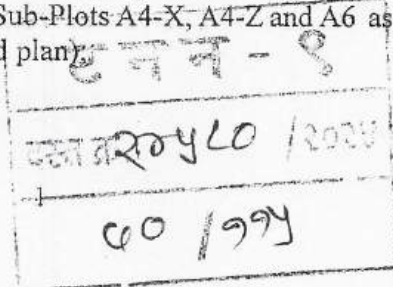 Sub-Plots A4-X, A4-Z and A6 as
d plan);
ट न न - ९
दस्त क्र २०५८० /२०२४
/११५